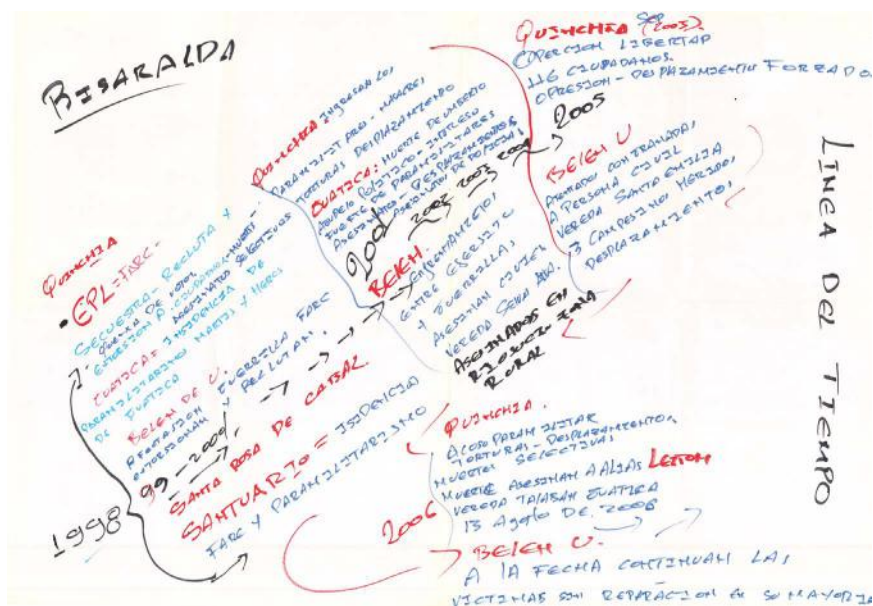 RISARALDA
LINEA DEL TIEMPO
1998
QUINCHIA
• EPL = FARC -
SECUESTRA - RECLUTA Y
EXTORSION A CIUDADANOS - MUERTES -
ASESINATOS SELECTIVOS
GUATICA = INSIDENCIA DE
PARAMILITARISMO MARTES Y HEROES
DE GUATICA
BELEN DE U.
AFECTACION GUERRILLA FARC
EXTORSIONAN Y RECLUTAN.
99 - 2000
SANTA ROSA DE CABAL
SANTUARIO = ISIDENCIA
FARC Y PARAMILITARISMO
QUINCHIA: INGRESAN LOS
PARAMILITARES - MASACRES
TORTURAS DESPLAZAMIENTO
GUATICA: MUERTE DE UMBERTO
POLITICO - INGRESO
FUERTE DE PARAMILITARES
ASESINATOS - DESPLAZAMIENTOS
ASESINATOS DE POLICIAS
2001 2002 2003 2004 2005
BELEN.
ENFRENTAMIENTO,
ENTRE EGERSITO
Y GUERRILLA,
ASESINAN CIVILES
VEREDA SELVA
ASESINADOS EN
RIOSUCIO ZONA
RURAL
QUINCHIA SEP (2003).
OPERCION LIBERTAD
116 CIUDADANOS.
OPRESION - DESPLAZAMIENTOS FORZADO
BELEN U
ATENTADO CON GRANADA,
A PERSONA CIVIL
VEREDA SANTA EMILIA
3 CAMPESINOS HERIDOS,
DESPLAZAMIENTO,
2006
QUINCHIA.
ACOSO PARAMILITAR
TORTURAS - DESPLAZAMIENTOS
MUERTES SELECTIVAS
MUERTE ASESINAN A ALIAS LEYTON
VEREDA TAIABAN GUATICA
13 AGOTO DE. 2006
BELEN U.
A LA FECHA CONTINUAN LAS
VICTIMAS SIN REPARACION EN SU MAYORIA